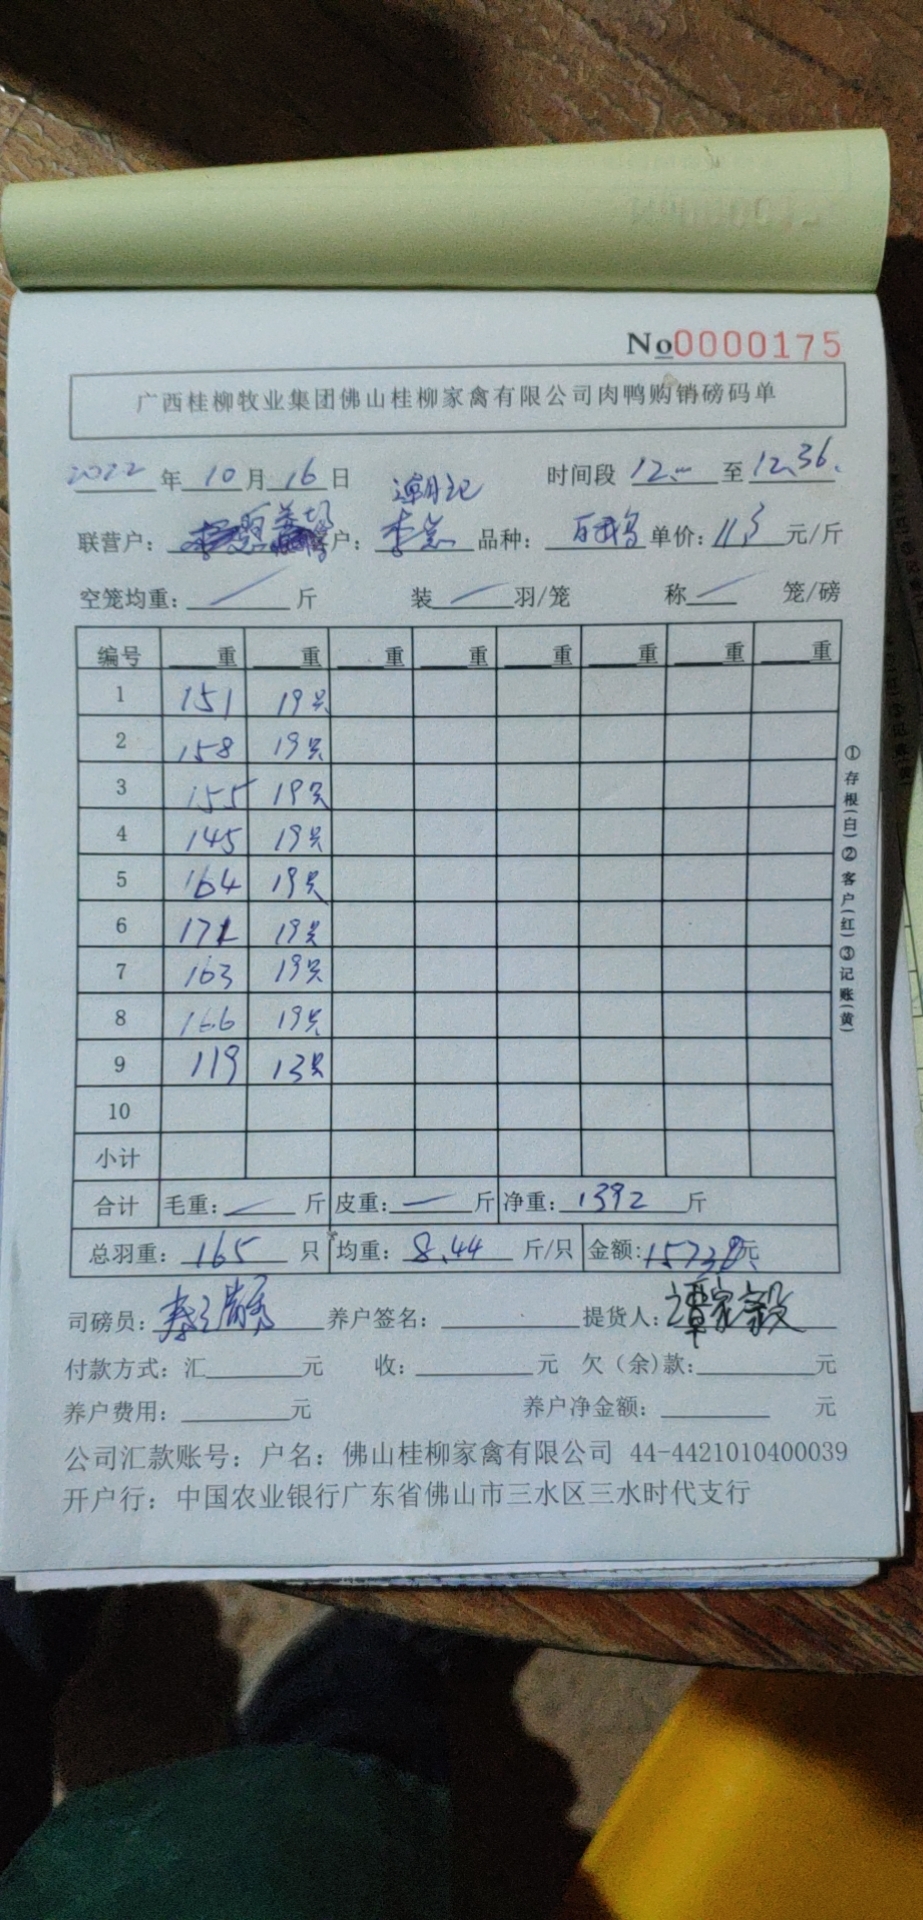 No0000175
广西桂柳牧业集团佛山桂柳家禽有限公司肉鸭购销磅码单
2022年10月16日 时间段12.00至12.36.
潮记
联营户： 户： 品种： 单价：11.3元/斤
空笼均重：/斤 装/羽/笼 称/笼/磅
编号 重 重 重 重 重 重 重 重
1 151 19只
2 158 19只
3 155 19只
4 145 19只
5 164 19只
6 171 19只
7 163 19只
8 166 19只
9 119 13只
10
小计
合计 毛重：/斤 皮重：/斤 净重：1392斤
总羽重：165只 均重：8.44斤/只 金额:元
司磅员： 养户签名： 提货人：谭家毅
付款方式：汇 元 收： 元 欠（余）款: 元
养户费用： 元 养户净金额： 元
公司汇款账号：户名：佛山桂柳家禽有限公司 44-4421010400039
开户行：中国农业银行广东省佛山市三水区三水时代支行
①存根(白)②客户(红)③记账(黄)